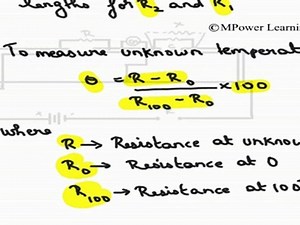 lengths for R₂ and R₁
©MPower Learni
To measure unknown temperat
θ = R - R₀ / R₁₀₀ - R₀ × 100
where
R → Resistance at unknow
R₀ → Resistance at 0
R₁₀₀ → Resistance at 100